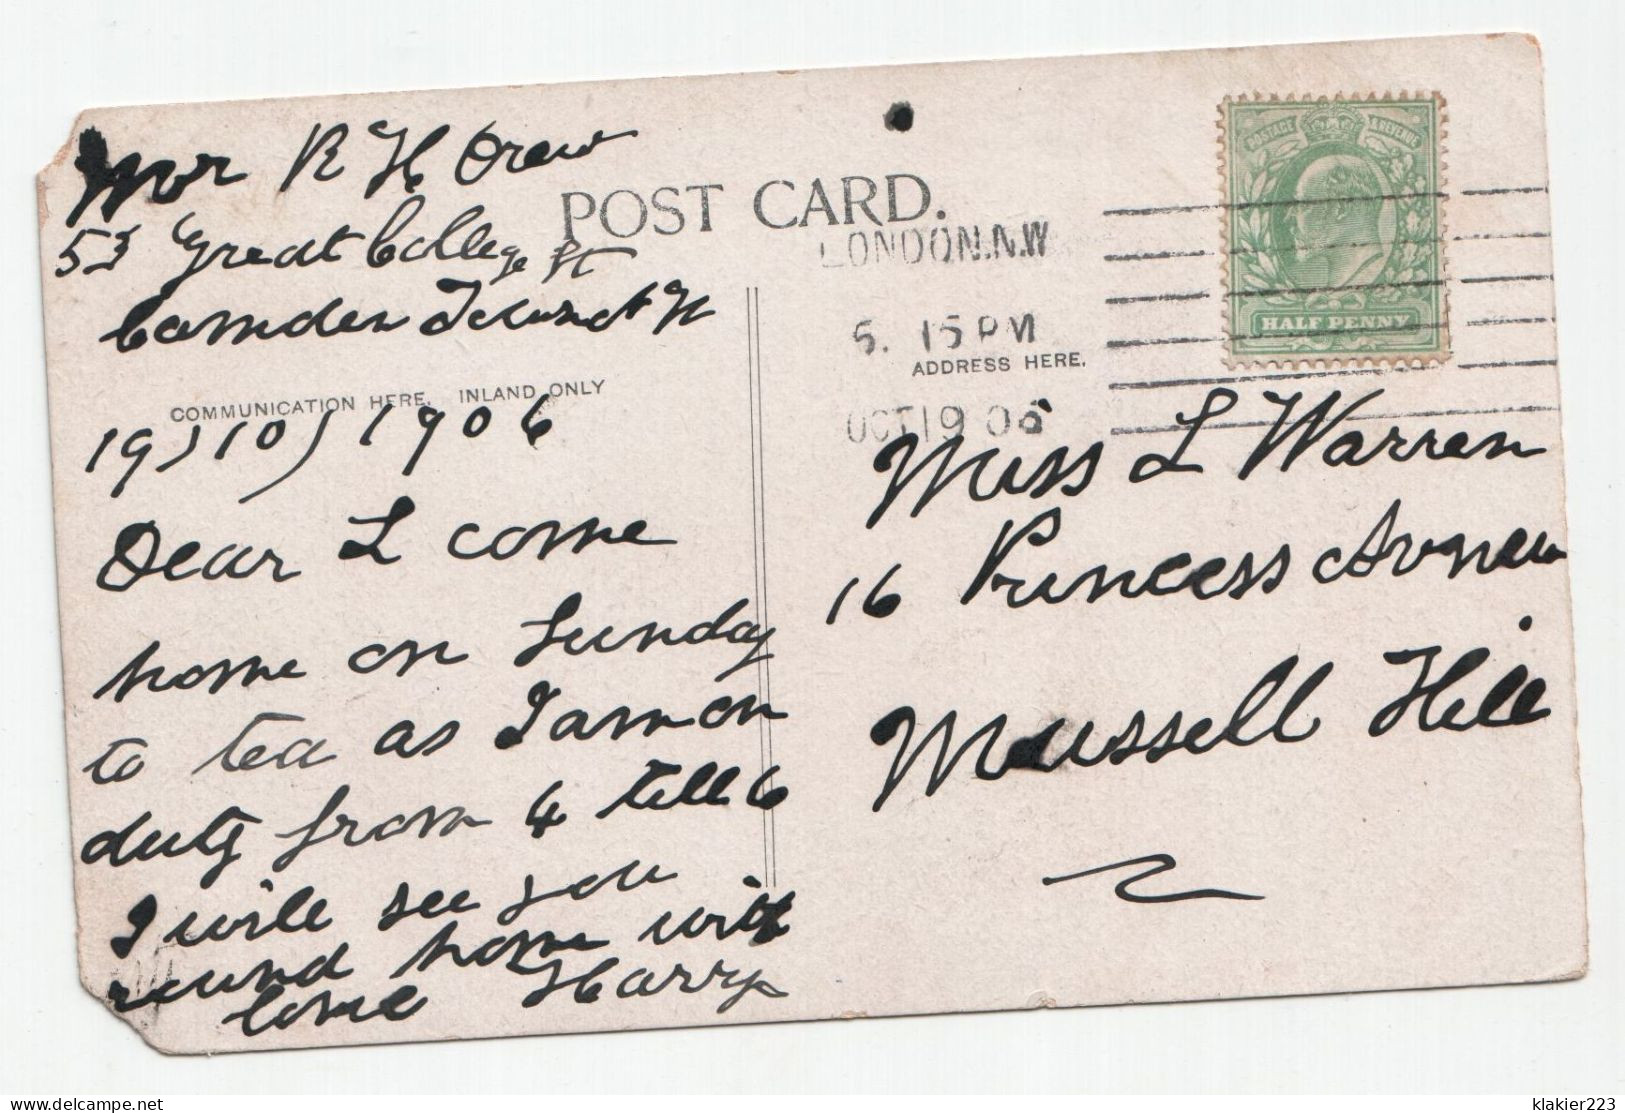 Mr R H Drew
53 Great College St
Camden Town N W
POST CARD.
COMMUNICATION HERE. INLAND ONLY
19/10/1906
Dear L come
home on Sunday
to tea as I am on
duty from 4 till 6
I will see you
round home with
love Harry
LONDON.N.W
5. 15 PM
OCT 19 06
POSTAGE & REVENUE
HALF PENNY
ADDRESS HERE.
Miss L Warren
16 Princess Avneu
Mussell Hill
klakier223